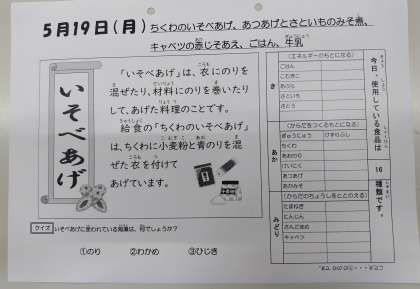 5月19日(月)
ちくわのいそべあげ、あつあげとさといものみそ煮、
キャベツの赤じそあえ、ごはん、牛乳
ぎゅうにゅう
いそべあげ
「いそべあげ」は、衣にのりを
混ぜたり、材料にのりを巻いたり
して、あげた料理のことです。
給食の「ちくわのいそべあげ」
は、ちくわに小麦粉と青のりを混
ぜた衣を付けて
あげています。
クイズ
いそべあげに使われている海藻は、何でしょうか?
①のり ②わかめ ③ひじき
き
(エネルギーのもとになる)
ごはん
こむぎこ
あぶら
さといも
さとう
あか
(からだをつくるもとになる)
ぎゅうにゅう けずりぶし
ちくわ
あおのり
けいにく
あつあげ
あかみそ
みどり
(からだのちょうしをととのえる)
たまねぎ
にんじん
キャベツ
今日、使用している食品は
16
種類です。